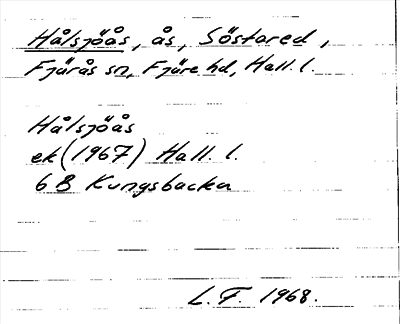 Hålsjöås, ås, Söstared,
Fjärås sn, Fjäre hd, Hall. l.
Hålsjöås
ek (1967) Hall. l.
6 B Kungsbacka
L. F. 1968.